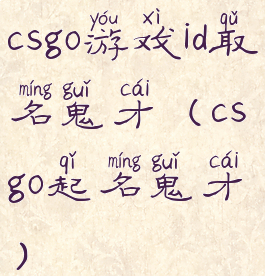 yóu xì qǔ
csgo游戏id取
míng guǐ cái
名鬼才（cs
qǐ míng guǐ cái
go起名鬼才
）